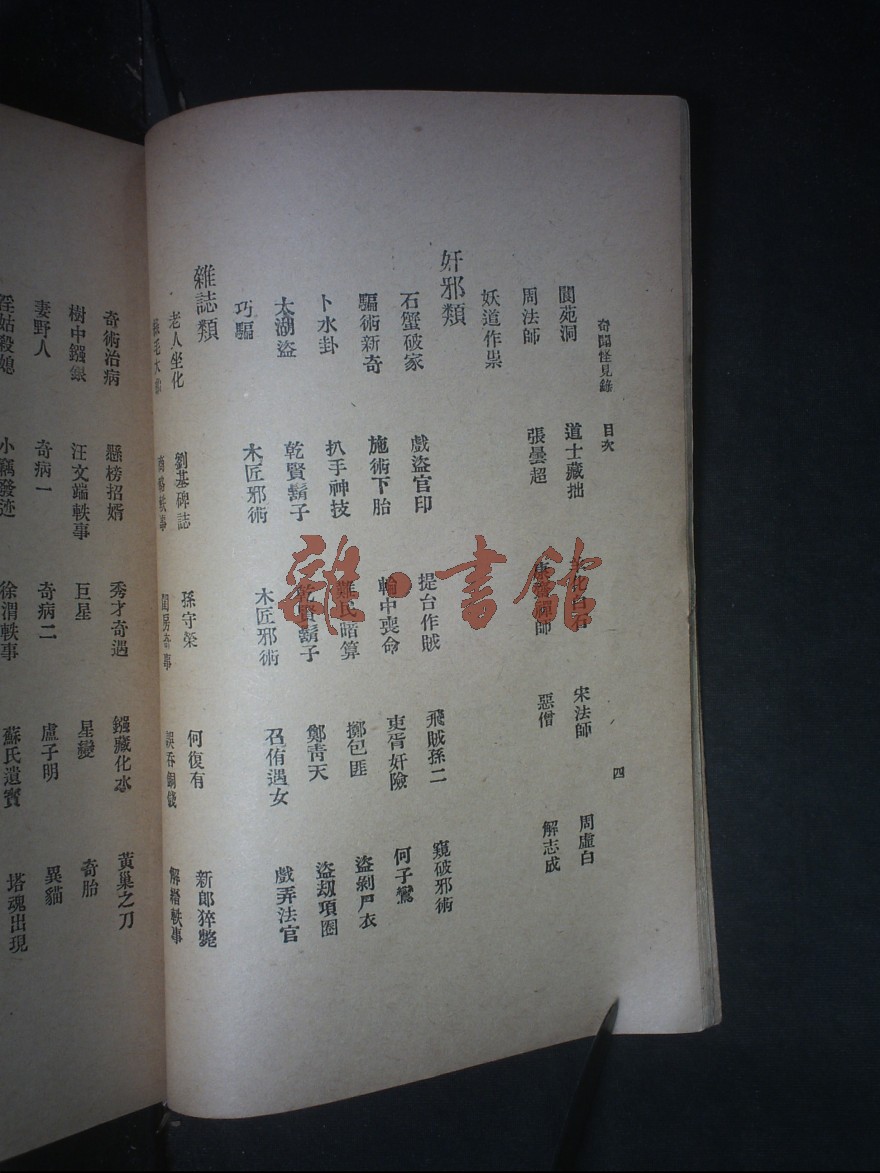 奇聞怪見錄 目次 四
閬苑洞 道士藏拙 宋法師 周虛白
周法師 張曇超 惡僧 解志成
妖道作祟
奸邪類
石蟹破家 戲盜官印 提台作賊 飛賊孫二 窺破邪術
騙術新奇 施術下胎 輪中喪命 吏胥奸險 何子鸞
卜水卦 扒手神技 難民暗算 擲包匪 盜剝尸衣
太湖盜 乾賢鬍子 乾賢鬍子 鄭青天 盜刼項圈
巧騙 木匠邪術 木匠邪術 召侑遇女 戲弄法官
雜誌類
老人坐化 劉基碑誌 孫守榮 何復有 新郎猝斃
軼事 閨房奇事 誤吞銅錢 解縉軼事
奇術治病 懸榜招婿 秀才奇遇 鏹藏化水 黃巢之刀
樹中鏹銀 汪文端軼事 巨星 星變 奇胎
妻野人 奇病一 奇病二 盧子明 異貓
淫姑殺媳 小竊發迹 徐渭軼事 蘇氏遺寶 塔魂出現
雜·書館